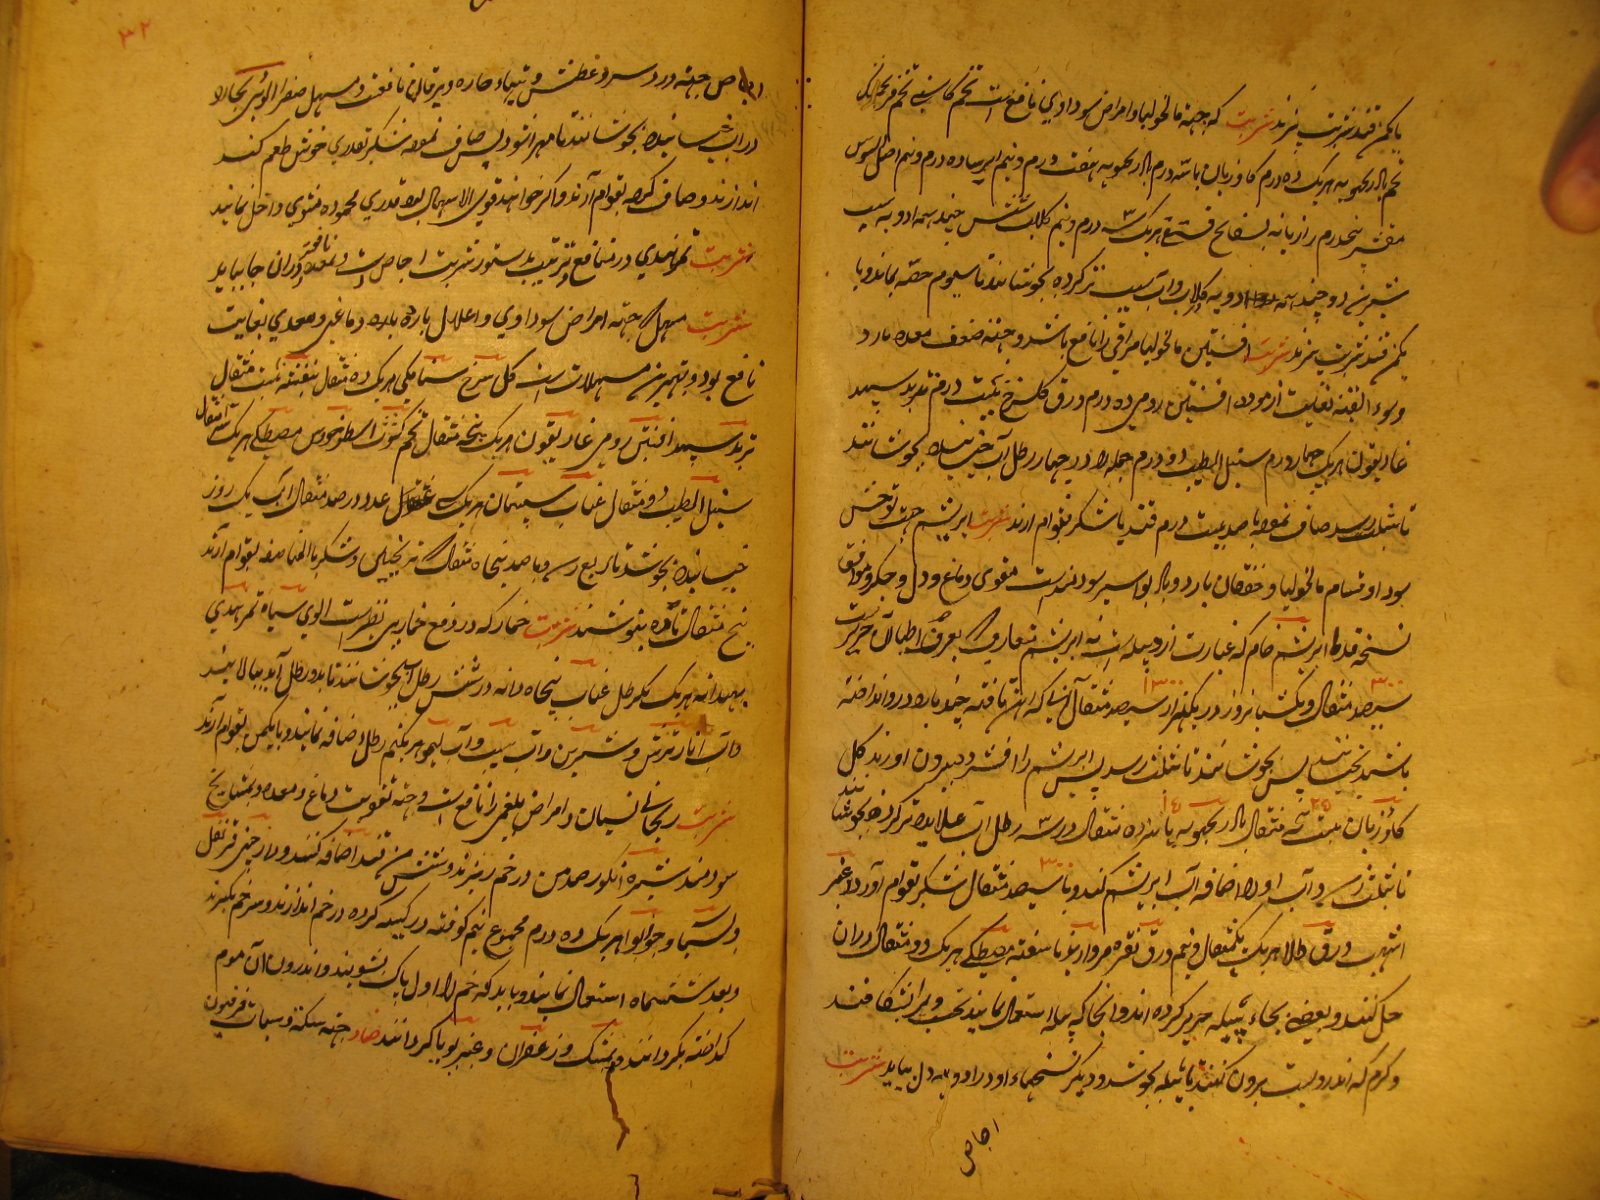 بایکمن قند شربت پزند شربت که جهة مالخولیا و امراض سوداوی نافع است تخم کاسنی تخم فرنجمشک
تخم بادرنجبویه هریک ده درم کاوزبان باسه درم بادرنجبویه هفت درم و نیم ایرسا ده درم و نیم اصل السوس
مقشر پنجدرم رازیانه بسفایج فستقی هریک سه درم و نیم کلاب شش چند همه ادویه سیب
شیرین دو چند همه ادویه در کلاب و آب سیب تر کرده بجوشانند تا سیوم حصه بماند و با
یکمن قند شربت پزند شربت افسنتین مالخولیا مراقی را نافع باشد و جهة ضعف معده بارد
و سوء القنیه بغایت ازموده افسنتین رومی ده درم ورق کل سرخ بیست درم تربد سپید
غاریقون هریک چهار درم سنبل الطیب دو درم جمله را در چهار رطل آب خیسانیده بجوشانند
تا بثلث رسد صاف نموده با صد بیست درم قند یا شکر بقوام ارند شربت ابریشم جهت توحش
بود و اقسام مالخولیا و خفقان بارد و بواسیر سودمند است مقوی دماغ و دل و جکر و موافق
نسخه قدما ابریشم خام که عبارت از و پیله است نه ابریشم متعارف بعرف اطبا آن حریر است
۳۰۰ ۱۳۰۰
سیصد مثقال و یکشبانروز در یکهزار سیصد مثقال آبی که اهن تافته چند باره درو انداخته
باشند بخیسانند پس بجوشانند تا بثلث رسد پس ابریشم را افشرده بیرون اورند کل
۲۵ ۱۵
کاوزبان بیست پنج مثقال بادرنجبویه پانزده مثقال در سه رطل آب علایده تر کرده بجوشانند
۳۰۰
تا بثلث رسد و آب او را اضافه آب ابریشم کنند و با سیصد مثقال شکر بقوام آورده عنبر
اشهب ورق طلا هریک یکمثقال و نیم ورق نقره مروارید ناسفته مصطکی هریک دو مثقال دران
حل کنند و بعضی بجاء پیله حریر کرده اند و انجا که پیله استعمال نمایند تخت ویرا بشکافند
و کرم که اندروست برون کنند یا پیله بجوشد و دیکر نسخهاء او در ادویه دل بیاید شربت
اجاص
۳۲
اجاص جهة درد سر و عطش و تبهاء حاره و یرقان نافعست و مسهل صفرا الوی بخارا
در آب خیسانیده بجوشانند تا مهرا شود پس صاف نموده شکر بقدری خوش طعم کند
اندازند و صاف کرده بقوام آرند و اکر خواهند قوی الاسهال بود قدری محموده مشوی داخل نمایند
شربت تمرهندی در منافع و ترتیب بدستور شربت اجاص است و نافعتر دران جا بیاید
شربت مسهل جهة امراض سوداوی و اعلال بارده دماغی و معدی بغایت
نافع بود و بهترین مسهلات است کل سرخ سنا مکی هریک ده مثقال بنفشه بیست مثقال
تربد سپید افسنتین رومی غاریقون هریک پنج مثقال تخم کشوث اسطوخودوس مصطکی هریک سه مثقال
سنبل الطیب دو مثقال عناب سپستان هریک سی عدد در صد مثقال آب یک روز
خیسانیده بجوشند تا بربع رسد و با صد پنجاه مثقال ترنجبین و شکر بالمناصفه بقوام آرند
پنج مثقال تا ده بنوشند شربت خمار که در دفع خمار بی نظیر است الوی سیاه تمر هندی
بهدانه هریک یکرطل عناب پنجاه دانه در شش رطل آب بجوشانند تا بدو رطل آید بپالایند
و آب انار ترش و شیرین و آب سیب و آب لیمو هریک نیم رطل اضافه نمایند و با یکمن بقوام آرند
شربت ریحانی نسیان و امراض بلغمی را نافع است و جهة تقویت دماغ و معده و مشایخ
سودمند شیره انکور صد من در خم ریزند و شش من قند اضافه کنند و دارچینی قرنفل
و بسباسه و جوزبوا هریک ده درم مجموع نیم کوفته در کیسه کرده در خم اندازند و سر خم بکیرند
و بعد شش ماه استعمال نمایند و باید که خم را اول پاک بشویند و اندرون آن موم
کداخته بکردانند و بمشک و زعفران و عنبر بویا کردانند ضماد جهة سکته و سبات فرفیون